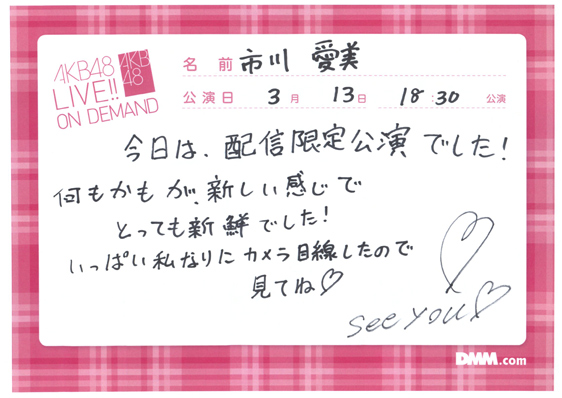 AKB48
LIVE!!
ON DEMAND
AKB
48
名 前 市川 愛美
公演日 3月 13日 18:30 公演
今日は、配信限定公演でした!
何もかもが、新しい感じで
とっても新鮮でした!
いっぱい私なりにカメラ目線したので
見てね♡
see you♡
DMM.com